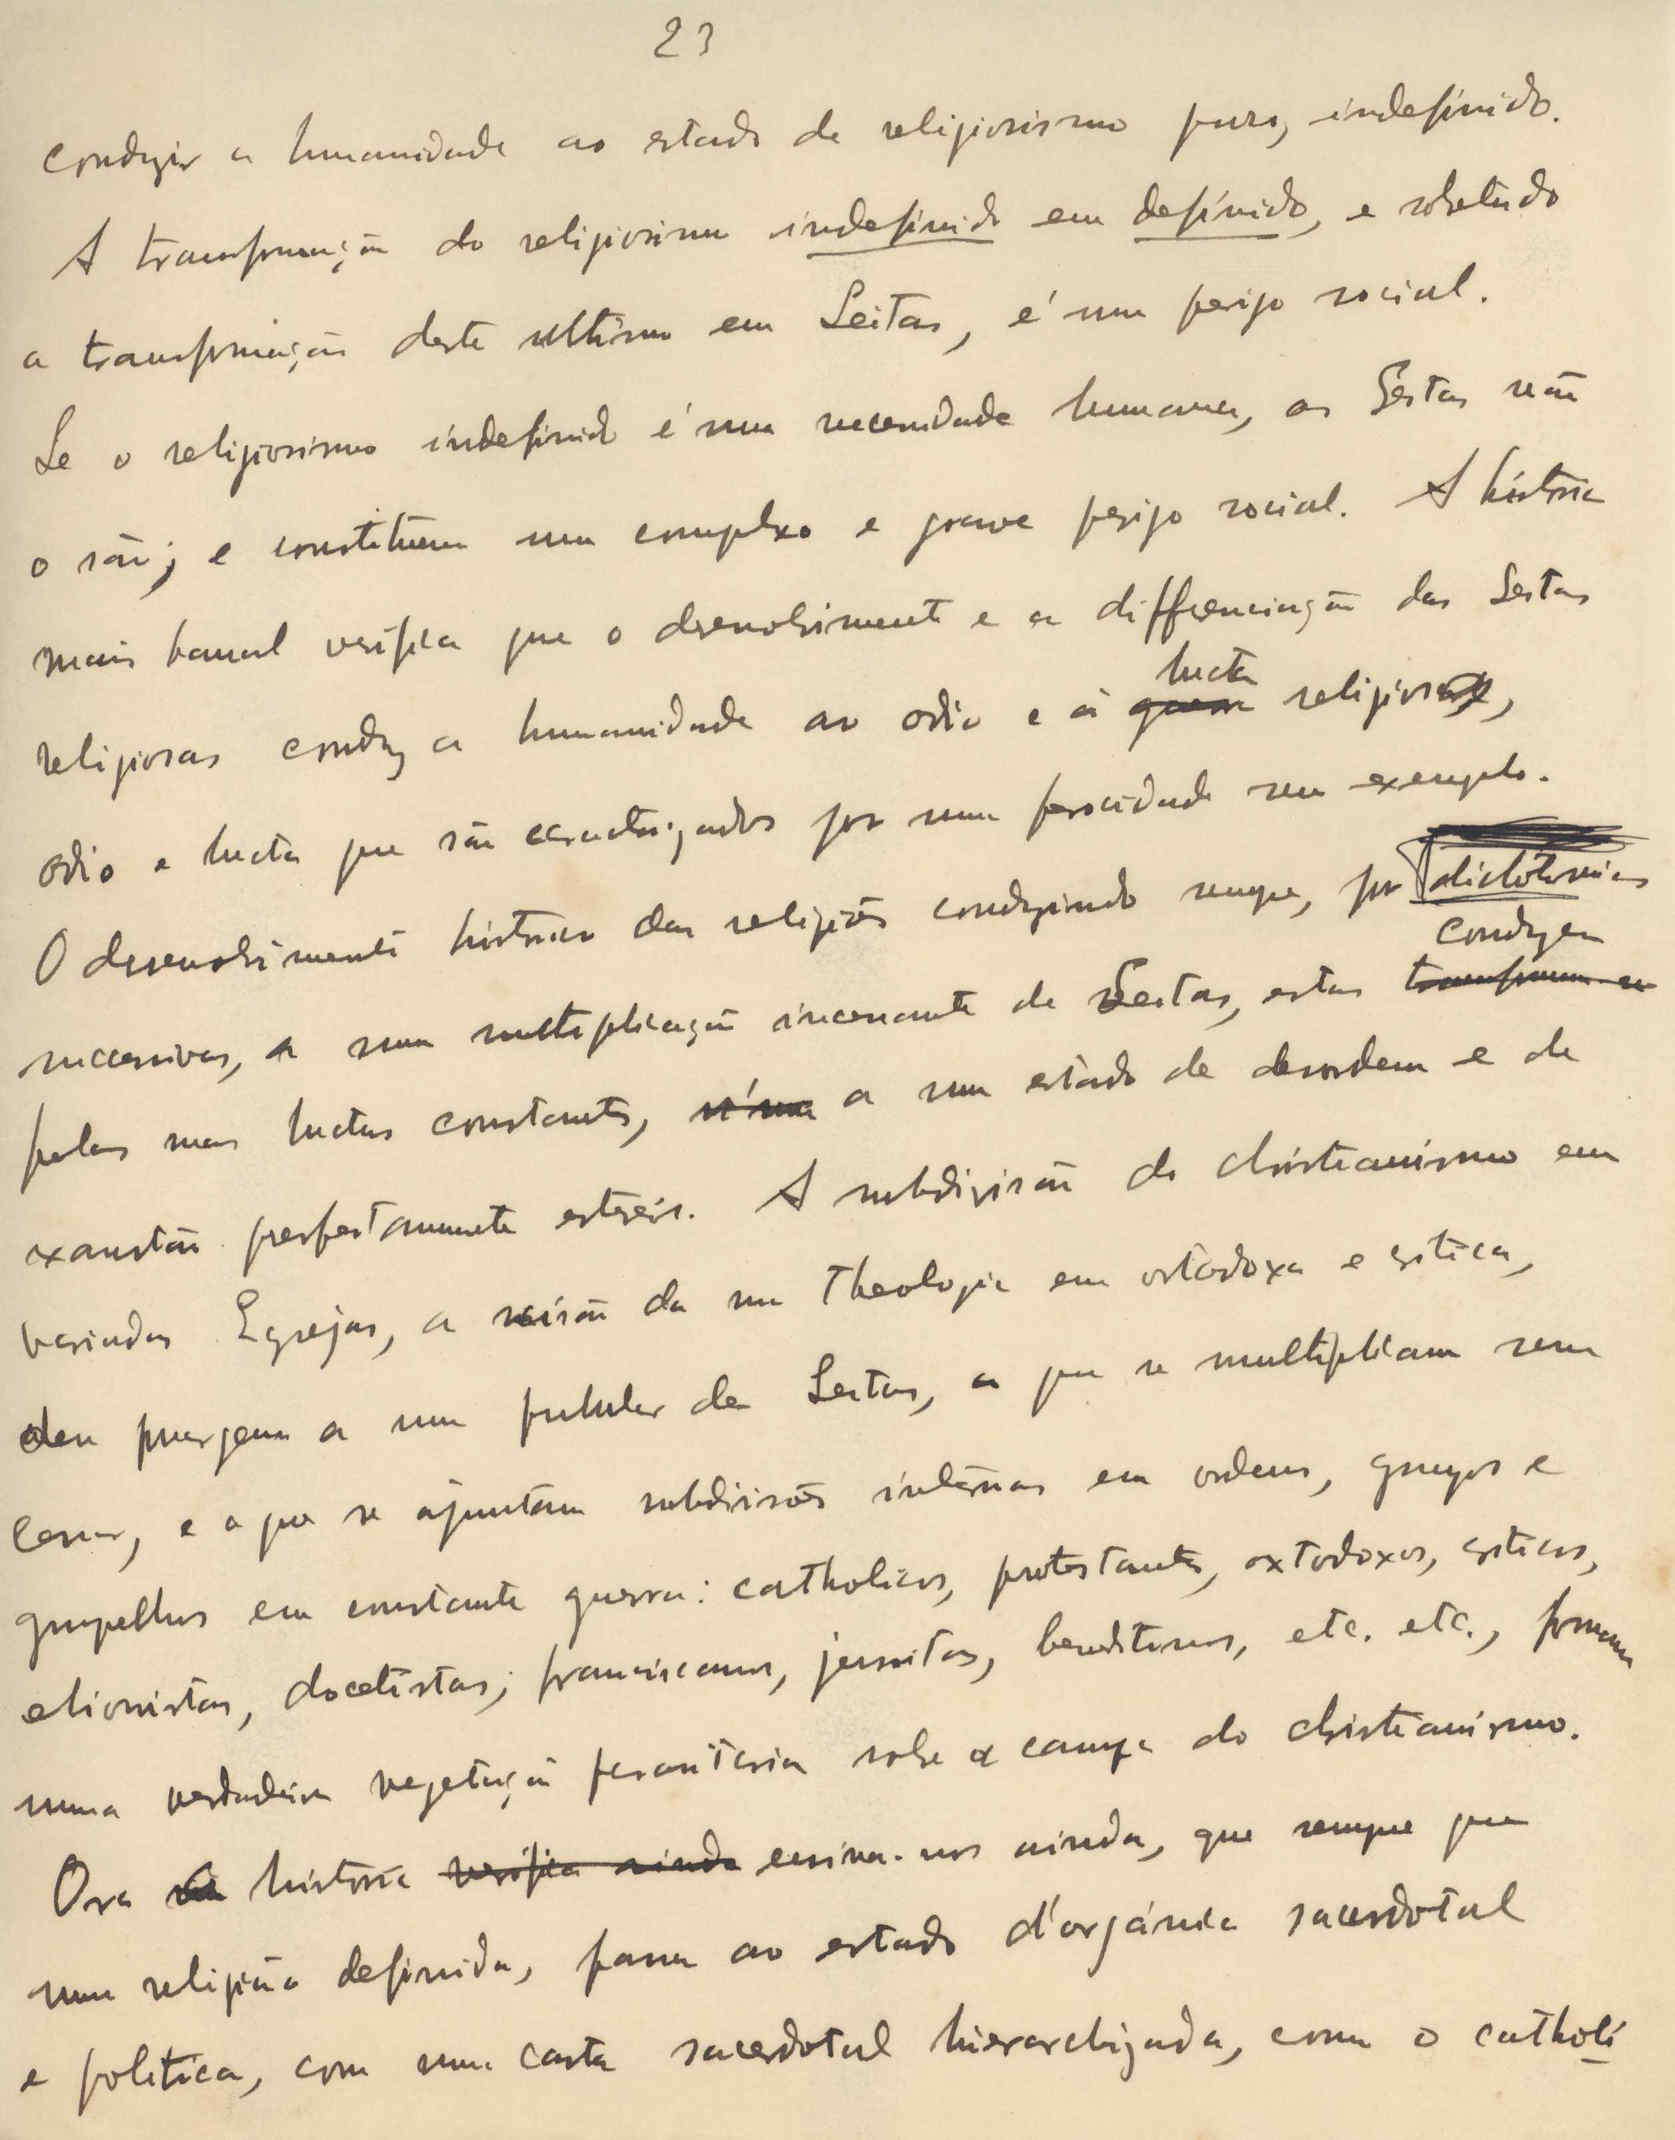 23
conduzir a humanidade ao estado de religiosismo puro, indefinido.
A transformação do religiosismo indefinido em definido, e sobretudo
a transformação deste ultimo em Seitas, é um perigo social.
Se o religiosismo indefinido é uma necessidade humana, as Seitas não
o são; e constituem um complexo e grave perigo social. A história
mais banal verifica que o desenvolvimento e a differenciação das Seitas
lucta
religiosas conduz a humanidade ao odio e á guerra religiosa,
odio e lucta que são caracterizados por uma ferocidade sem exemplo.
O desenvolvimento historico das religiões conduzindo sempre, por dichótomias
conduzem
successivas, a uma multiplicação incessante de Seitas, estas transformam em
pelas suas luctas constantes, n'um a um estado de desordem e de
exaustão perfeitamente estereis. A subdivisão do christianismo em
variadas Egrejas, a cisão da sua Theologia em ortodoxa e critica,
deu margem a um pulular de Seitas, a que se multiplicam sem
cessar, e a que se ajuntam subdivisões internas em ordens, grupos e
grupelhos em constante guerra: catholicos, protestantes, ortodoxos, criticos,
ebionistas, docetistas; franciscanos, jesuitas, beneditinos, etc. etc., formam
uma verdadeira vegetação parasitaria sobre a campa do christianismo.
Ora a história verifica ainda ensina-nos ainda, que sempre que
uma religião definida, passa ao estado d'orgánica sacerdotal
e politica, com uma casta sacerdotal hierarchizada, como o catholi